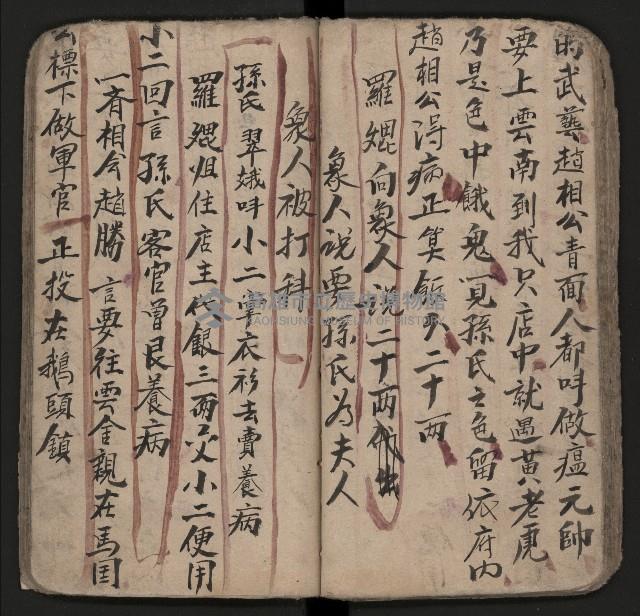 的武藝趙相公青面人都呌做瘟元帥
要上雲南到我只店中就遇黃老虎
乃是色中餓鬼一見孫氏之色留依府內
趙相公淂病正算飯久二十兩
羅焜向象人說二十兩
象人說要孫氏為夫人
象人被打科
孫氏 翠娥呌小二拿衣衫去賣養病
羅焜姐住店主 銀三兩交小二便用
小二回言孫氏客官曾良養病
一看相公趙勝 言要往雲 親在馬国
公標下做軍官 正投在鵝頭鎮
高雄市立歷史博物館
KAOHSIUNG MUSEUM OF HISTORY